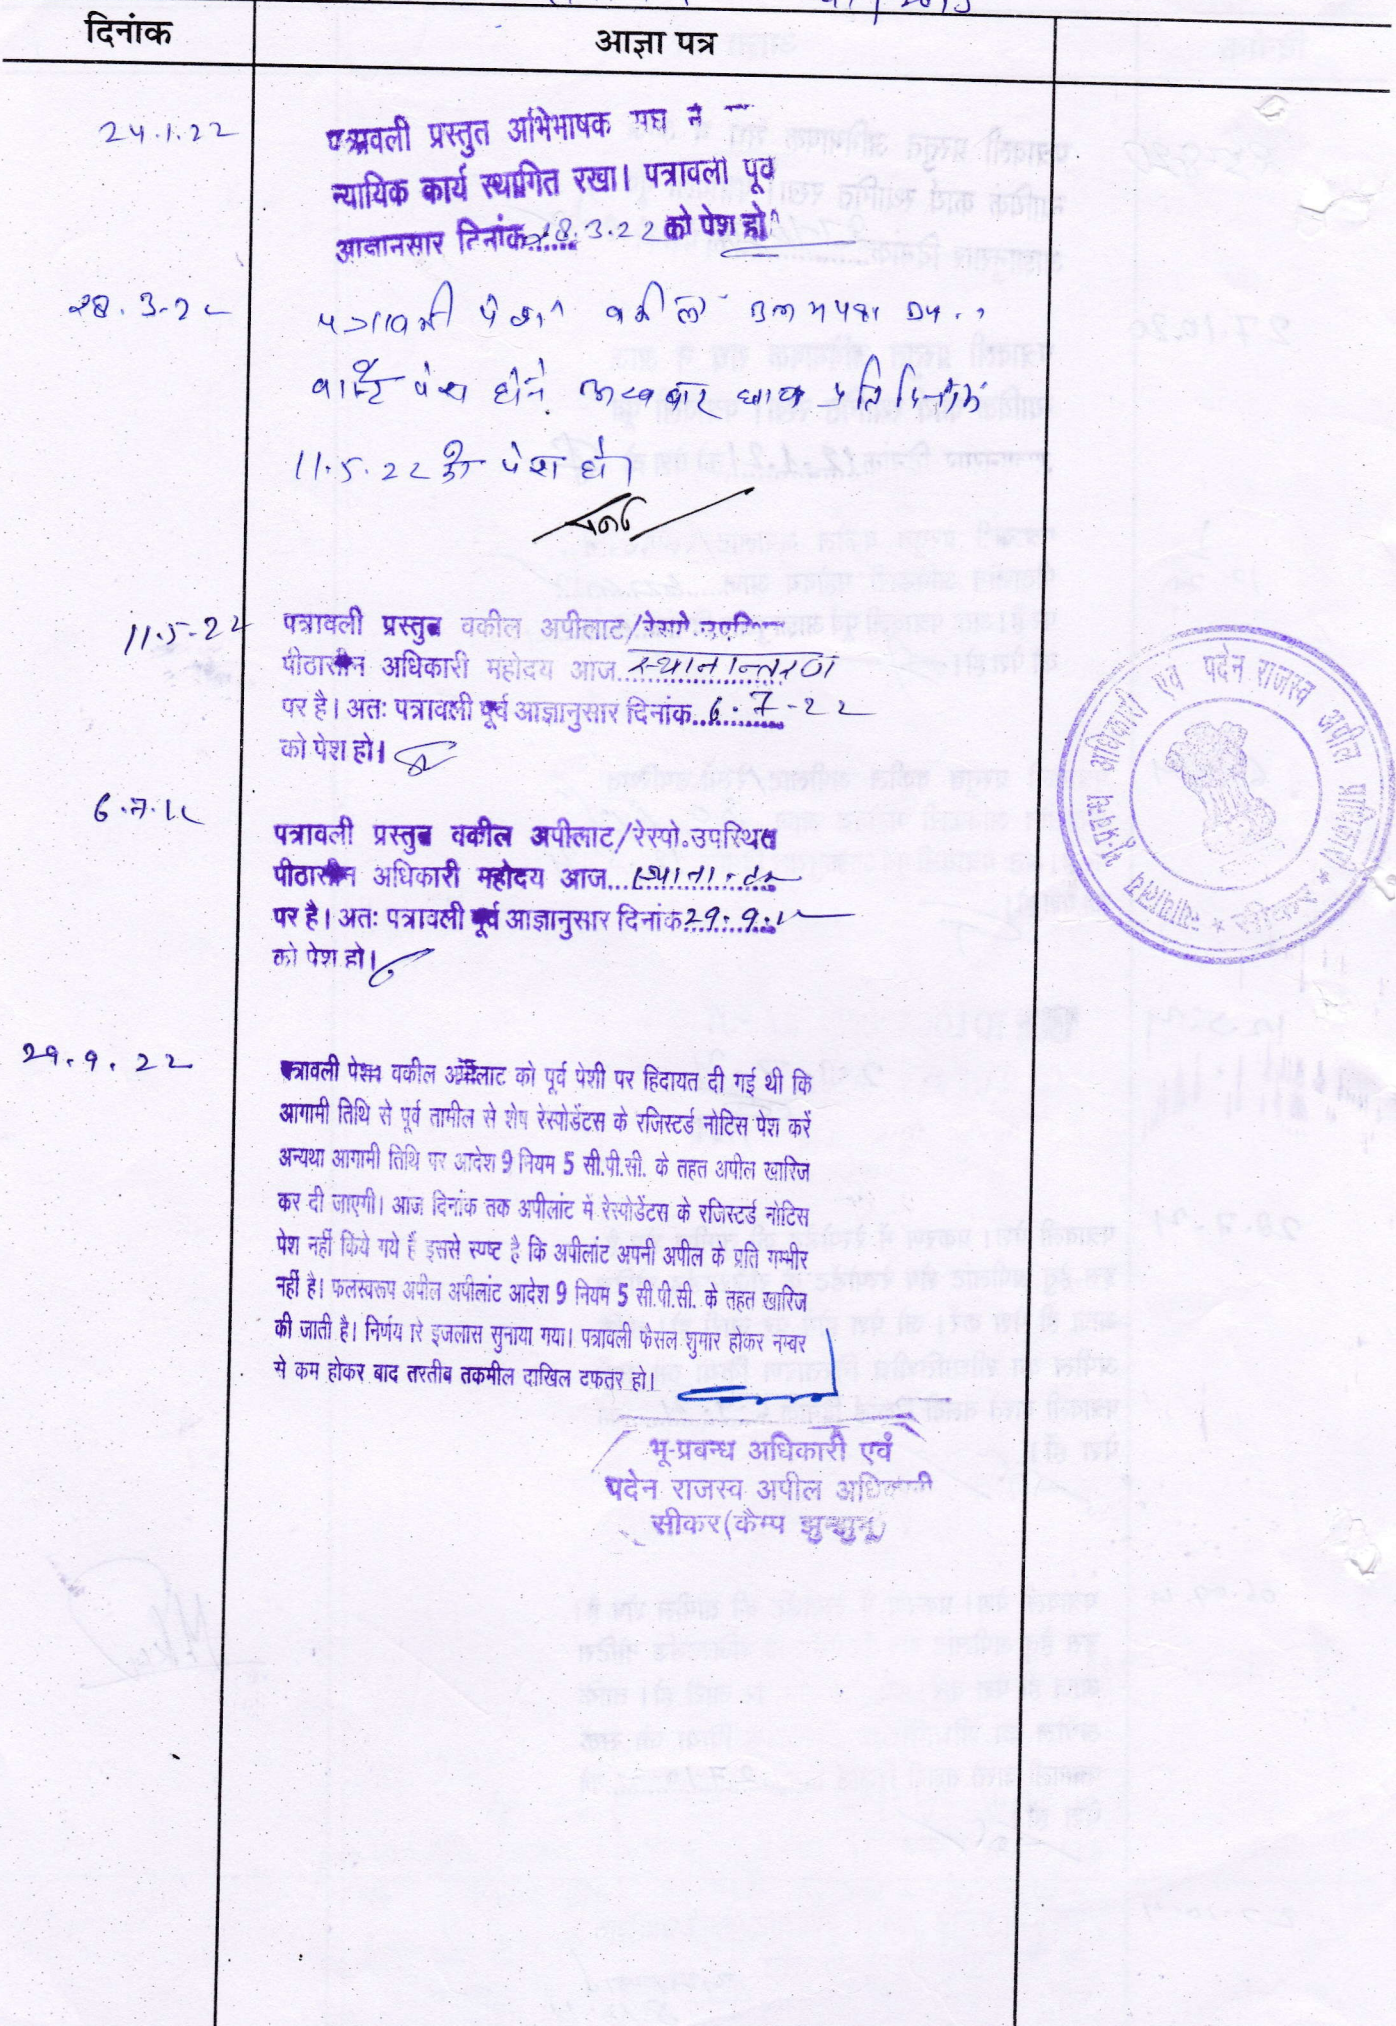 दिनांक
आज्ञा पत्र
24.1.22
पत्रावली प्रस्तुत अभिभाषक संघ ने
न्यायिक कार्य स्थगित रखा। पत्रावली पूर्व
आज्ञानसार दिनांक 28.3.22 को पेश हो
28.3.22
पत्रावली पेश वकील उभयपक्ष
पेश होने
11.5.22 को पेश हो।
11.5.22
पत्रावली प्रस्तुत वकील अपीलाट/रेस्पो.उपस्थित
पीठासीन अधिकारी महोदय आज स्थानान्तरण
पर है। अतः पत्रावली पूर्व आज्ञानुसार दिनांक 6.7.22
को पेश हो।
6.7.22
पत्रावली प्रस्तुत वकील अपीलाट/रेस्पो.उपस्थित
पीठासीन अधिकारी महोदय आज
पर है। अतः पत्रावली पूर्व आज्ञानुसार दिनांक 29.9.22
को पेश हो।
29.9.22
पत्रावली पेश। वकील अपीलाट को पूर्व पेशी पर हिदायत दी गई थी कि
आगामी तिथि से पूर्व तामील से शेष रेस्पोडेंटस के रजिस्टर्ड नोटिस पेश करें
अन्यथा आगामी तिथि पर आदेश 9 नियम 5 सी.पी.सी. के तहत अपील खारिज
कर दी जाएगी। आज दिनांक तक अपीलांट में रेस्पोडेंटस के रजिस्टर्ड नोटिस
पेश नहीं किये गये है इससे स्पष्ट है कि अपीलांट अपनी अपील के प्रति गम्भीर
नहीं है। फलस्वरूप अपील अपीलांट आदेश 9 नियम 5 सी.पी.सी. के तहत खारिज
की जाती है। निर्णय सरे इजलास सुनाया गया। पत्रावली फैसल शुमार होकर नम्बर
से कम होकर बाद तरतीब तकमील दाखिल दफतर हो।
भू-प्रबन्ध अधिकारी एवं
पदेन राजस्व अपील अधिकारी
सीकर (कैम्प झुन्झुनू)
न्यायालय भू-प्रबन्ध अधिकारी एवं पदेन राजस्व अपील प्राधिकारी